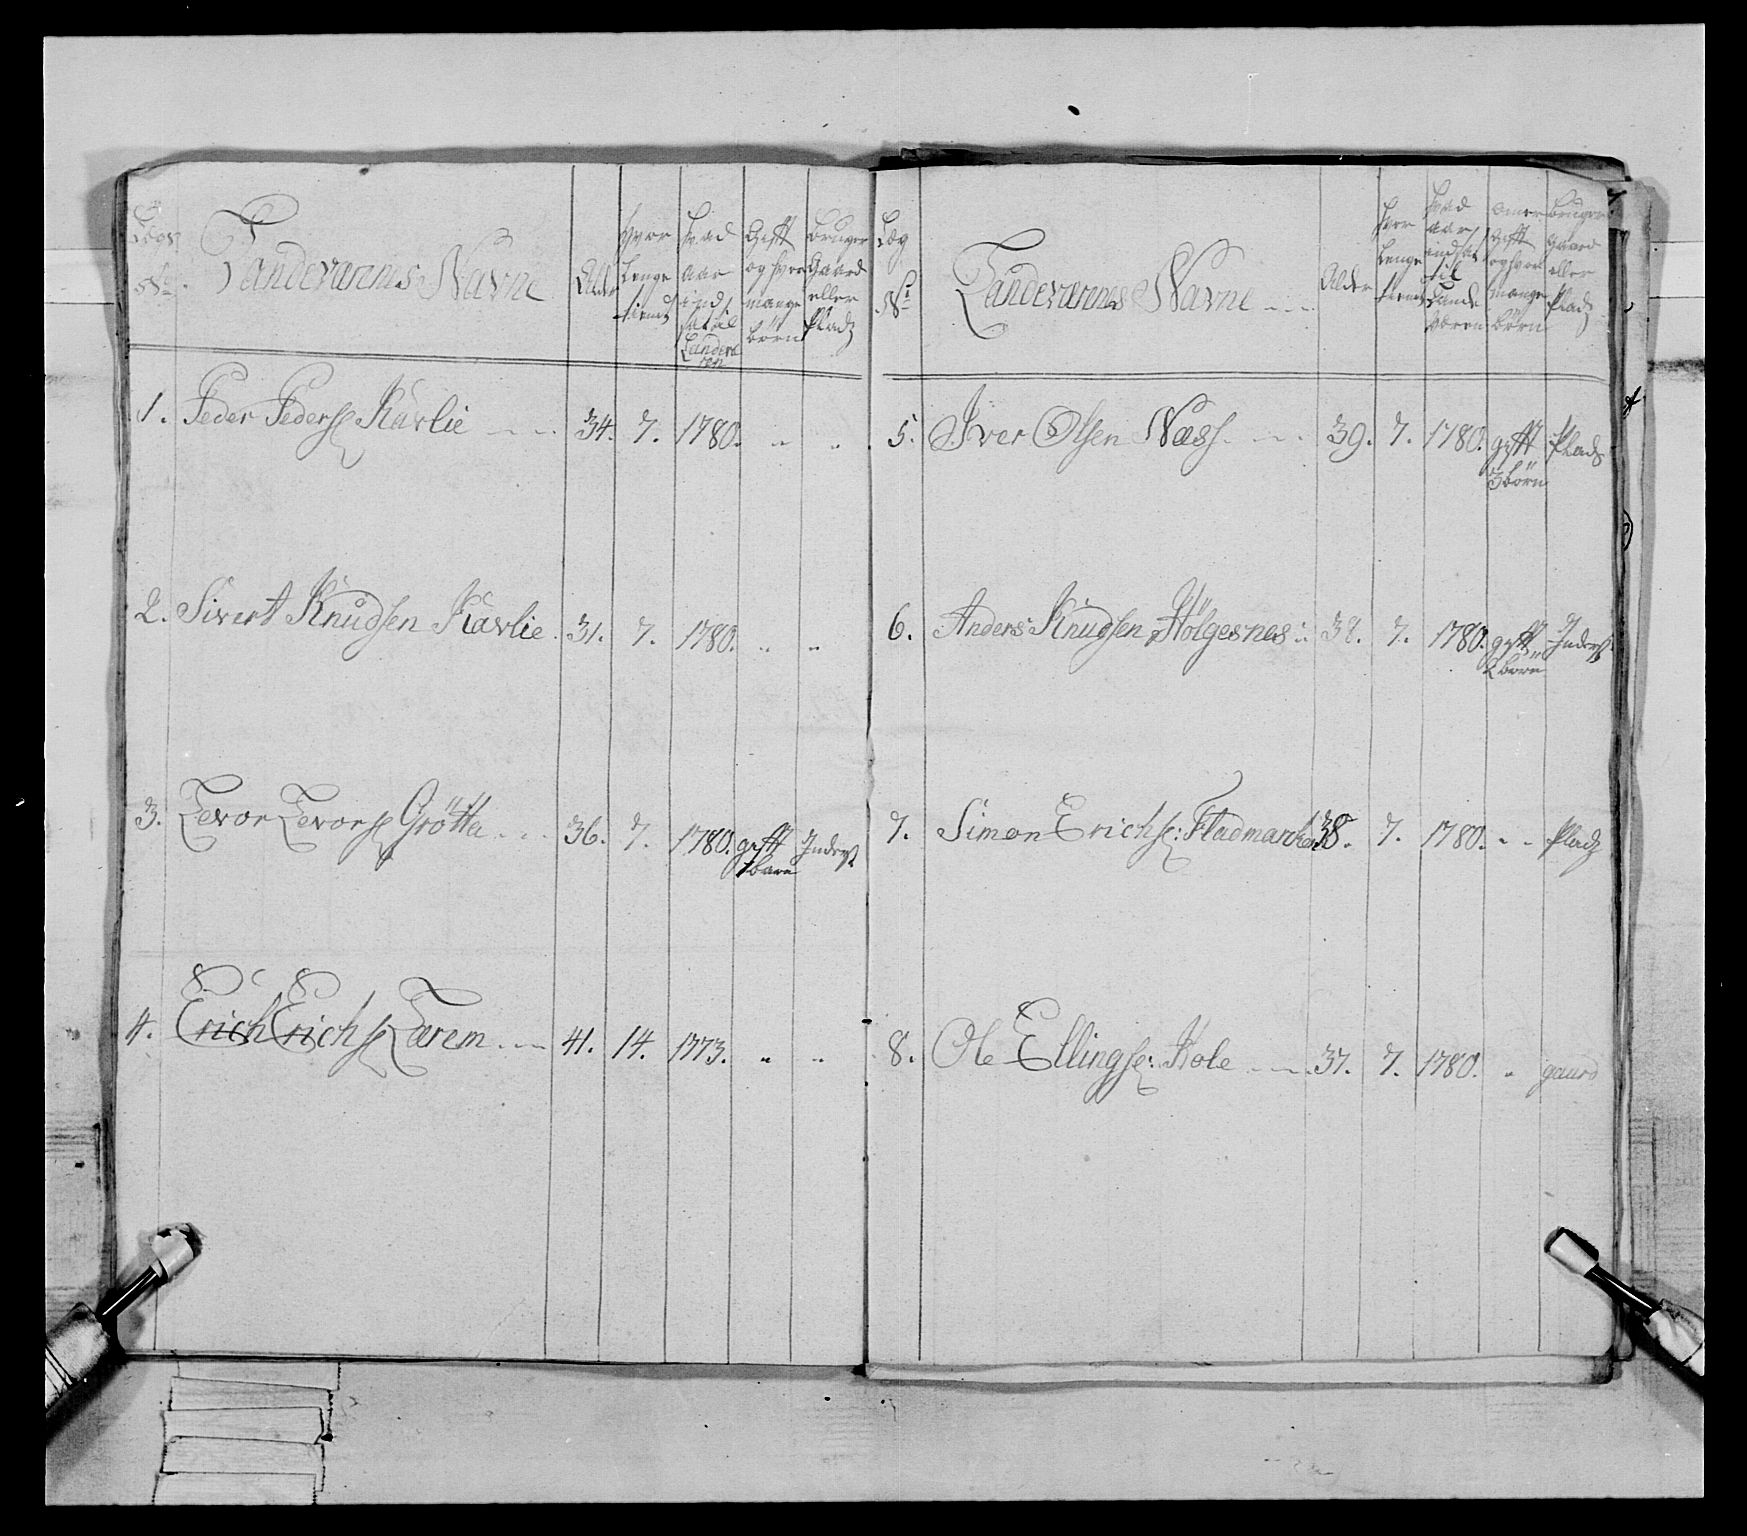 Lægs No.
Landeværnes Navne
Alder
hvor Lenge tient
hvad aar indsat til Landeværen
Gifft og hvor mange börn
bruger Gaard eller Pladz
1. Peder Peders: Kavlie - - 34. 7. 1780. " "
2. Sivert Knudsen Kavlie. 31. 7. 1780. " "
3. Tevor Tevors: Grötta - - 36. 7. 1780. gifft 1 barn Inderst
4. Erich Erichs: Tærem - - - 41. 14. 1773. " "
Læg No.
Landeværnes Navne - - -
Alder
hvor Lenge tient
hvad aar indsat til Lande Væren
om er Gifft og hvor mange börn
bruger Gaard eller Pladz
5. Iver Olsen Næss - - - 39. 7. 1780. gifft 3 börn Plads
6. Anders Knudsen Hölgesnes - 38. 7. 1780. gifft 2 born Inderst
7. Simon Erichs: Fladmarck 38. 7. 1780. " " Pladz
8. Ole Ellings: Hole - - - 37. 7. 1780. " gaard